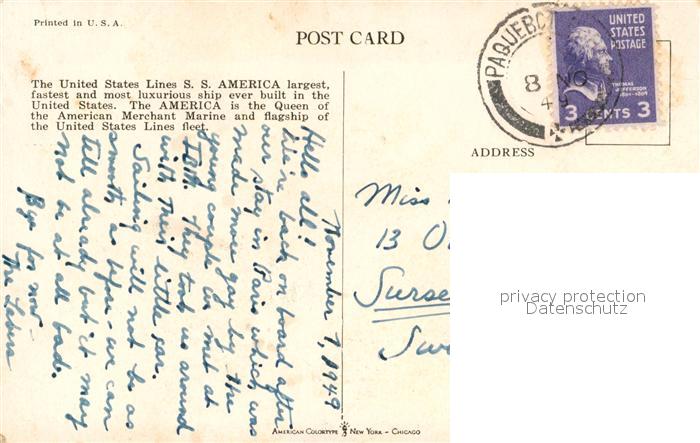 Printed in U. S. A.
POST CARD
The United States Lines S. S. AMERICA largest,
fastest and most luxurious ship ever built in the
United States. The AMERICA is the Queen of
the American Merchant Marine and flagship of
the United States Lines fleet.
November 7, 1949
Hello all!
We're back on board after
our stay in Paris which was
made more gay by the
young couple we met at
They took us around
with their little car.
Sailing will not be as
smooth as before - we can
tell already but it may
not be at all bad.
Bye for now
The
PAQUEBO
8 NO
49
UNITED
STATES
POSTAGE
THOMAS
JEFFERSON
1801-1809
3 CENTS 3
ADDRESS
Miss
13 O
Surse
Sw
privacy protection
Datenschutz
AMERICAN COLORTYPE NEW YORK - CHICAGO